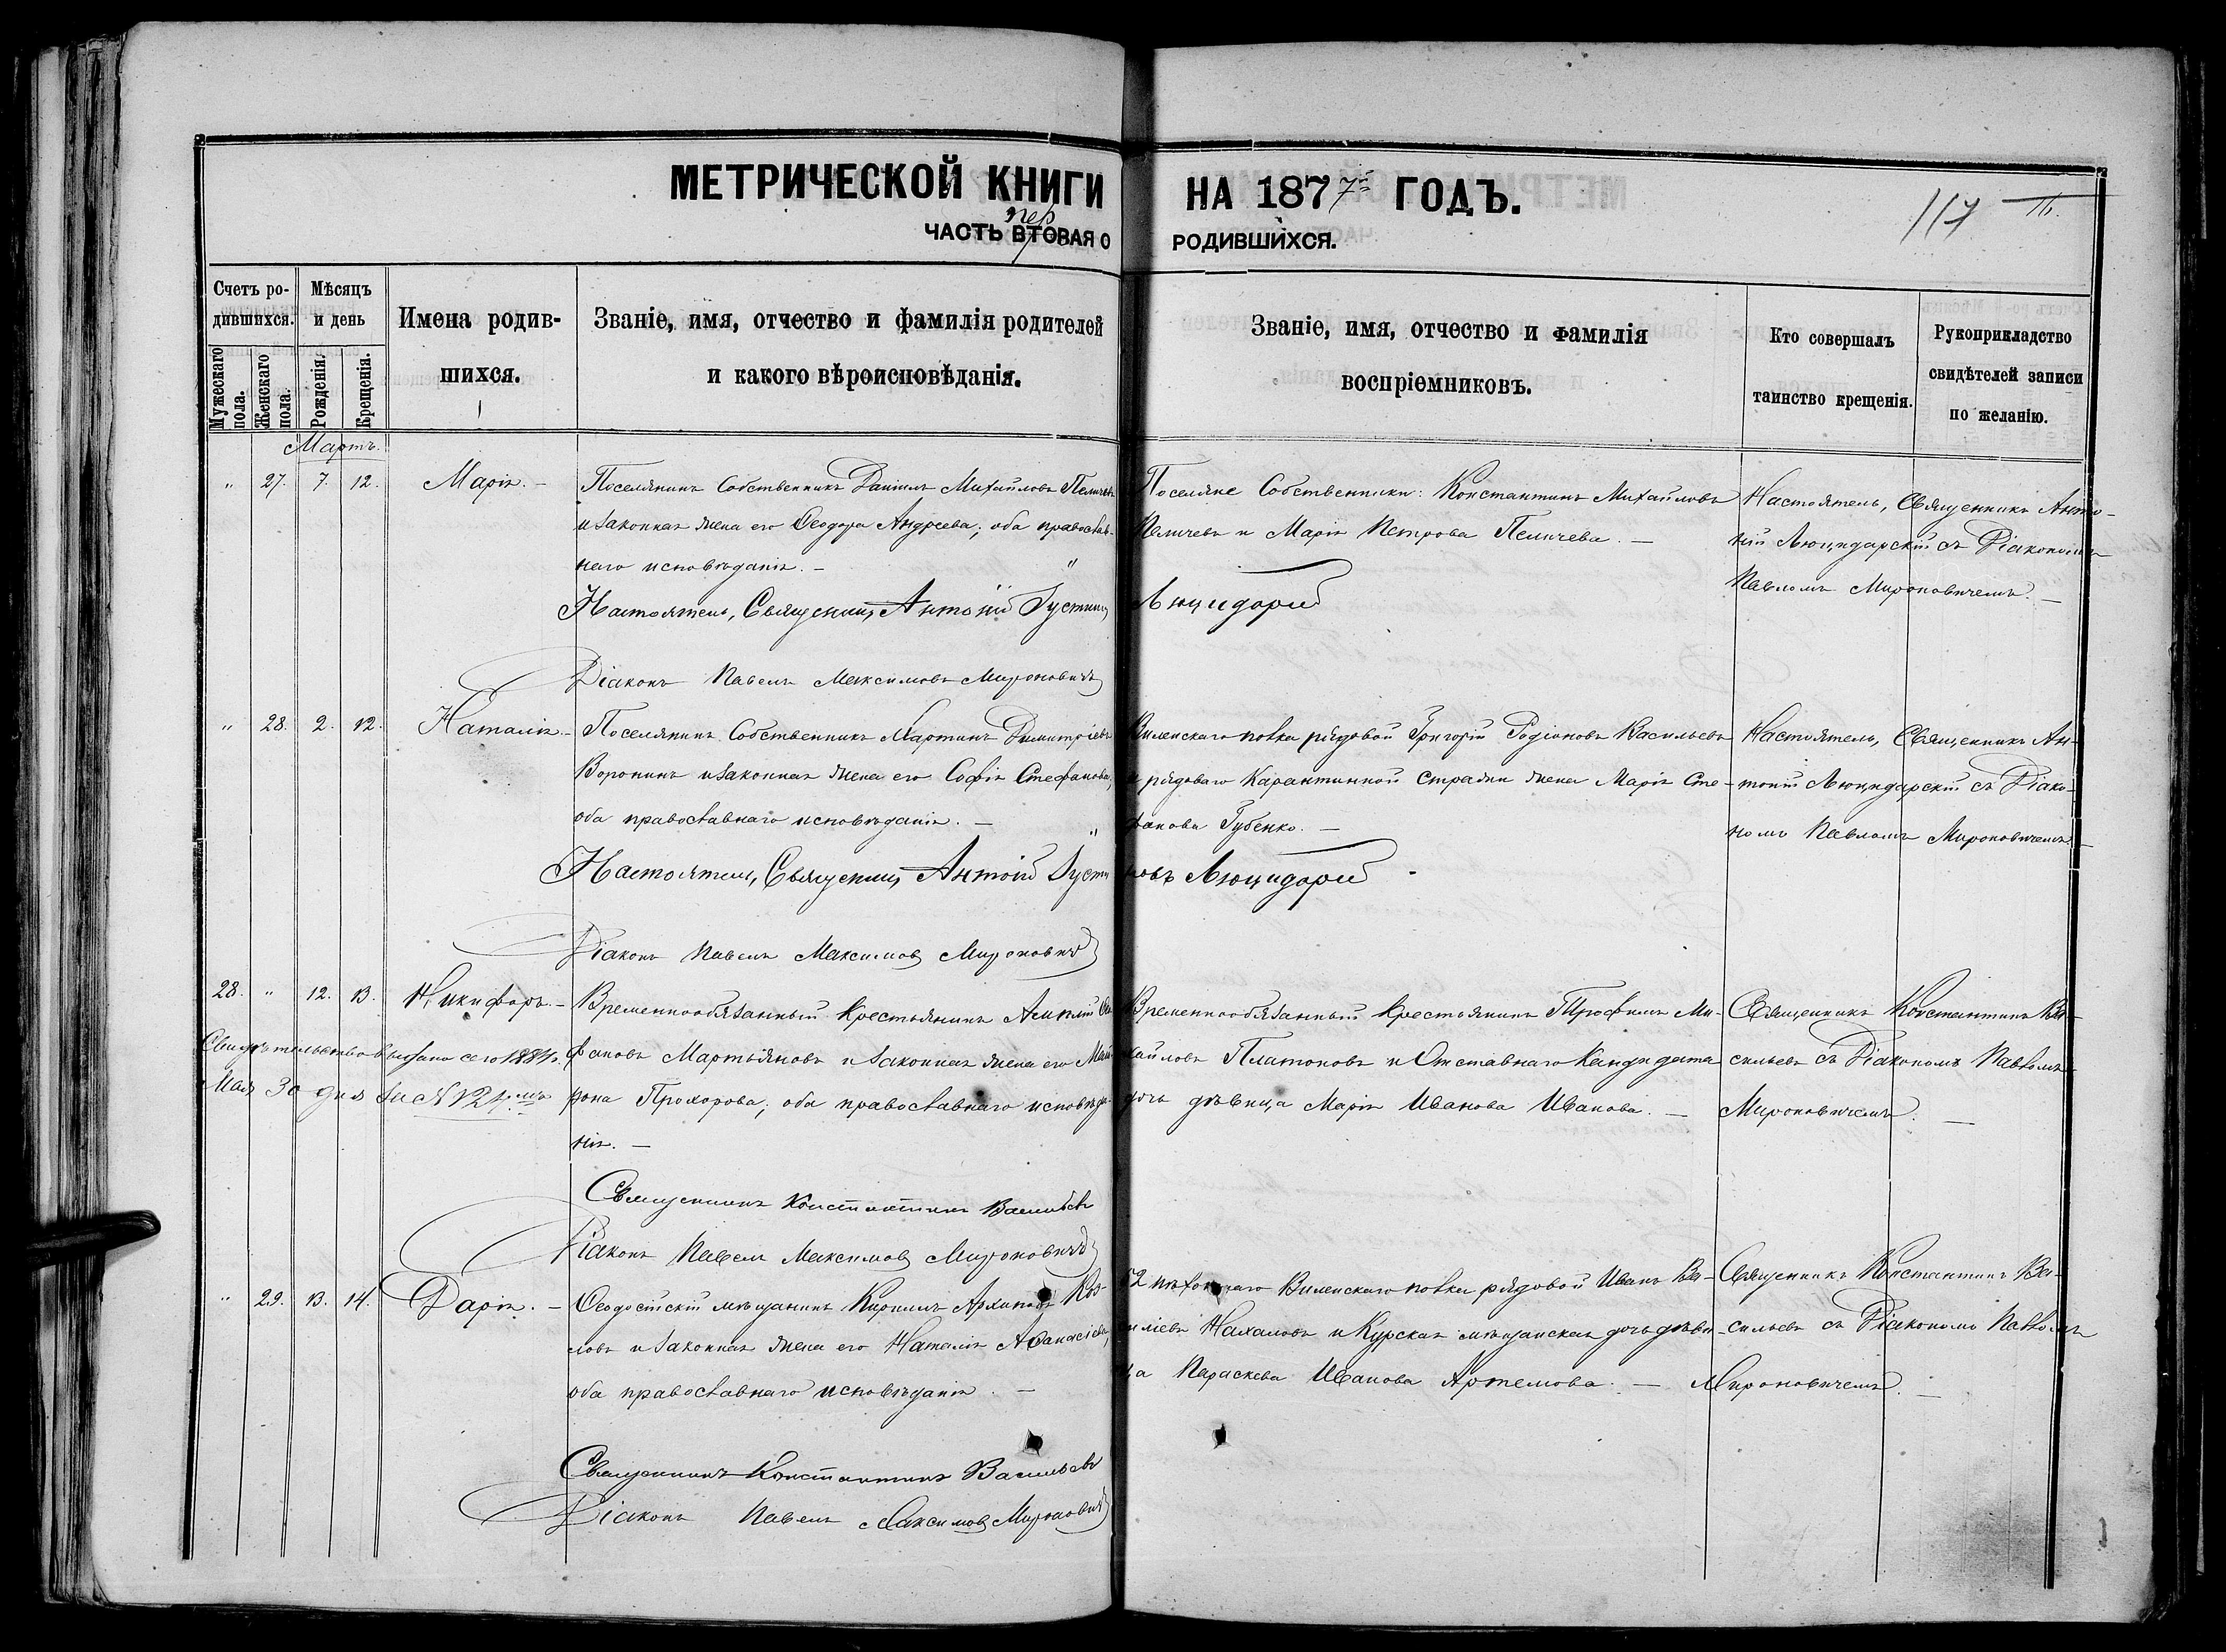 МЕТРИЧЕСКОЙ КНИГИ НА 1877й ГОДЪ.
117
ЧАСТЬ ВТОРАЯ О РОДИВШИХСЯ.
пер
Счетъ родившихся.
Мужескаго пола.
Женскаго пола.
Мѣсяцъ и день
Рожденія.
Крещенія.
Имена родившихся.
Званіе, имя, отчество и фамилія родителей
и какого вѣроисповѣданія.
Званіе, имя, отчество и фамилія
воспріемниковъ.
Кто совершалъ
таинство крещенія.
Рукоприкладство
свидѣтелей записи
по желанію.
Мартъ.
" 27. 7. 12. Марія. –
Поселянинъ Собственникъ Даніилъ Михайловъ Пеличевъ
и законная жена его Ѳеодора Андреева; оба православ-
наго исповѣданія. –
Поселяне Собственники: Константинъ Михайловъ
Пеличевъ и Марія Петрова Пеличева. –
Настоятель, Священникъ Анто-
ній Люцидарскій съ Діакономъ
Павломъ Мироновичемъ. –
Настоятель, Священникъ Антоній Люцидарскій
Діаконъ Павелъ Максимовъ Мироновичъ
" 28. 2. 12. Наталія. –
Поселянинъ Собственникъ Мартинъ Димитріевъ
Воронинъ и законная жена его Софія Стефанова,
оба православнаго исповѣданія. –
Виленскаго полка рядовой Григорій Родіоновъ Васильевъ
и рядоваго Карантинной стражи жена Марія Сте-
фанова Губенко. –
Настоятель, Священникъ Ан-
тоній Люцидарскій съ Діако-
номъ Павломъ Мироновичемъ. –
Настоятель, Священникъ Антоній Люцидарскій
Діаконъ Павелъ Максимовъ Мироновичъ
28. " 12. 13. Никифоръ. –
Свидѣтельство выдано сего 1884 г.
Мая 30 дня за № 124мъ
Временнообязанный Крестьянинъ
фановъ Мартьяновъ и законная жена его Мат-
рона Прохорова; оба православнаго исповѣда-
нія. –
Временнообязанный Крестьянинъ Трофимъ Ми-
хайловъ Платоновъ и Отставнаго Кандидата
дочь дѣвица Марія Иванова Иванова. –
Священникъ Константинъ Ва-
сильевъ съ Діакономъ Павломъ
Мироновичемъ. –
Священникъ Константинъ Васильевъ
Діаконъ Павелъ Максимовъ Мироновичъ
" 29. 13. 14. Дарія. –
Ѳеодосійскій мѣщанинъ Кириллъ Архиповъ Коз-
ловъ и законная жена его Наталія Аѳанасіева,
оба православнаго исповѣданія. –
52 пѣхотнаго Виленскаго полка рядовой Иванъ Ва-
силіевъ Нахаловъ и Курская мѣщанская дочь дѣви-
ца Параскева Иванова Артемова. –
Священникъ Константинъ Ва-
сильевъ съ Діакономъ Павломъ
Мироновичемъ. –
Священникъ Константинъ Васильевъ
Діаконъ Павелъ Максимовъ Мироновичъ